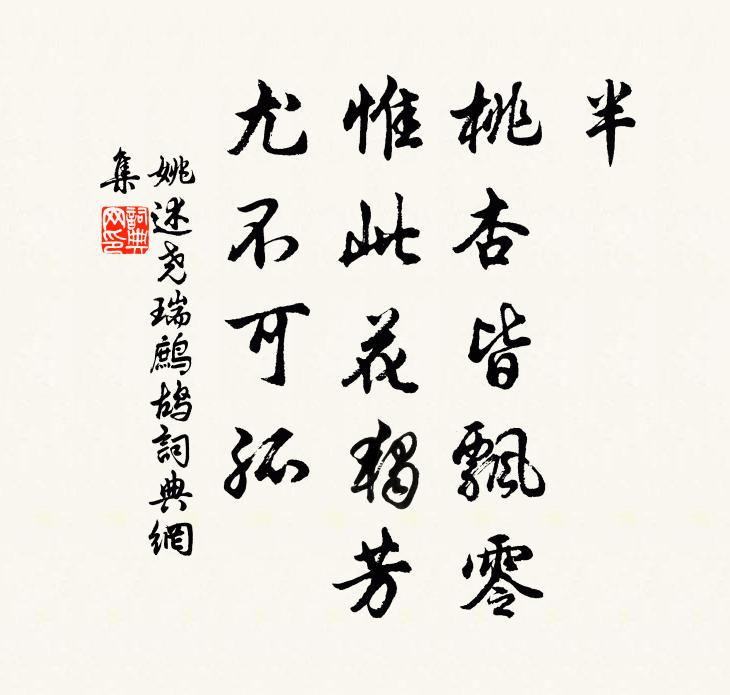 半
桃杏皆飄零
惟此花獨芳
尤不可孤
姚述尧瑞鷓鴣詞典網
集
詞典
网印